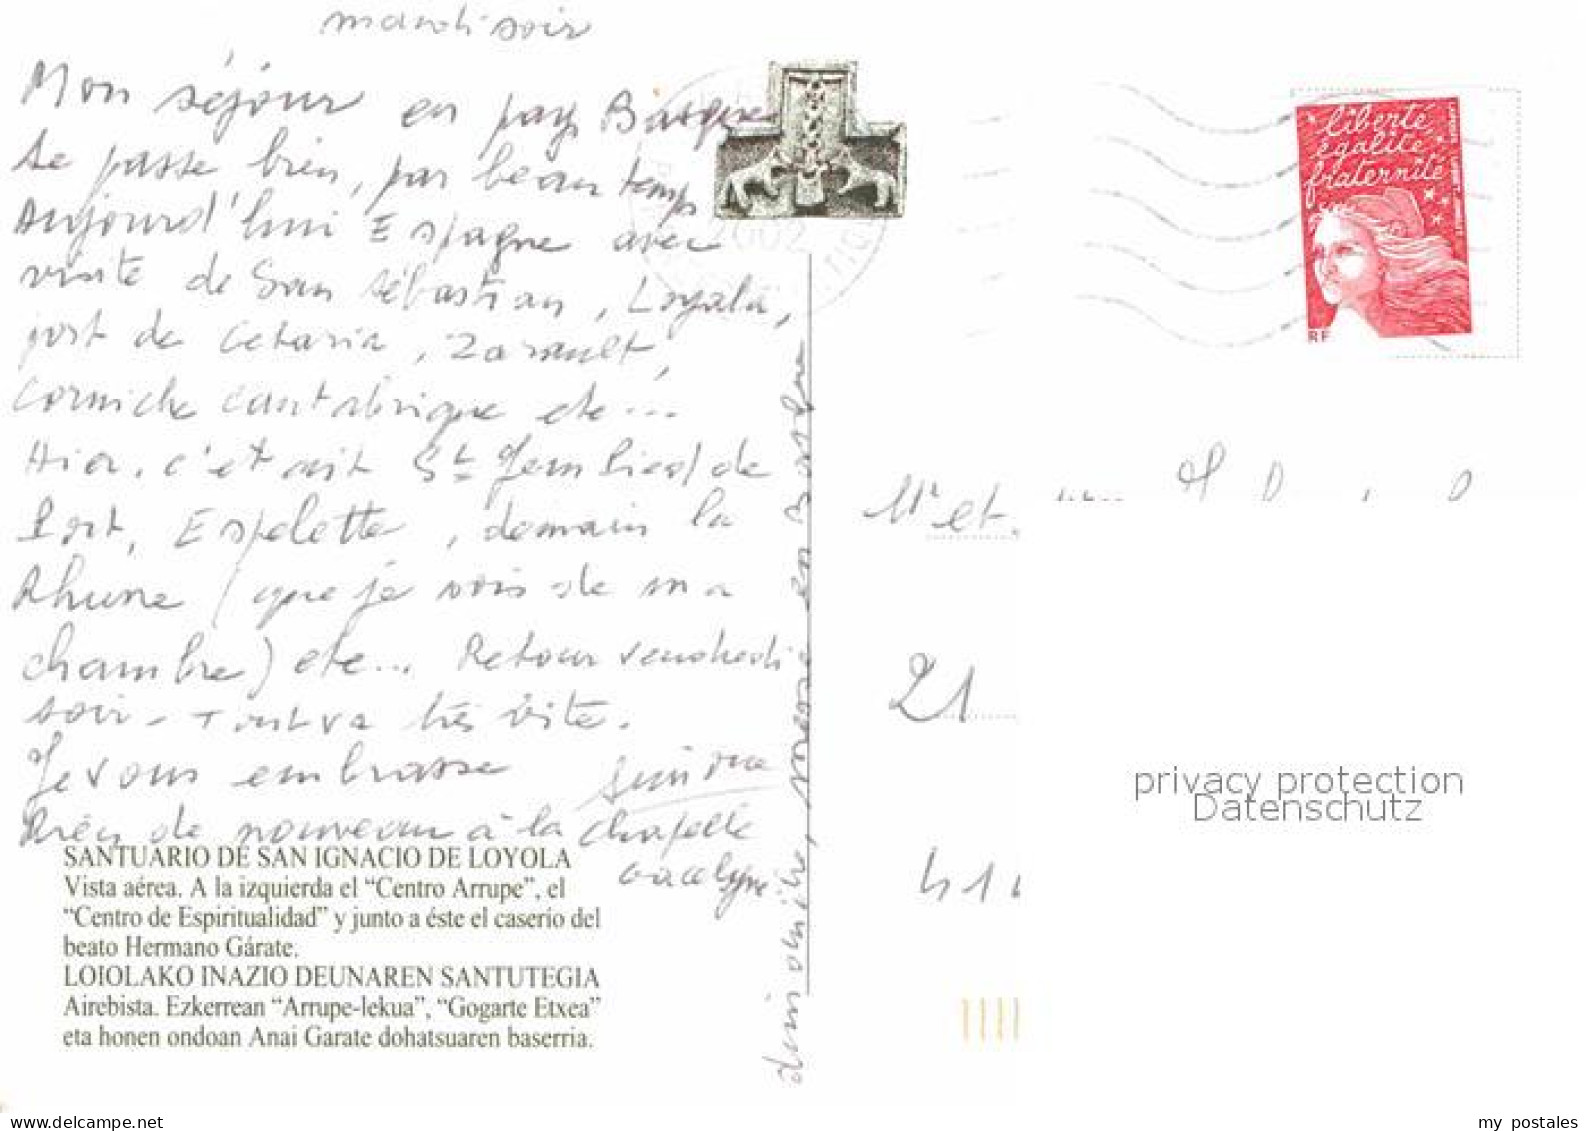 mardi soir
Mon séjour en pays Basque
se passe bien, par beau temps
Aujourd'hui Espagne avec
visite de San Sébastian, Loyola,
port de Getaria, Zarault,
Corniche cantabrique etc...
Hier, c'était St Jean Pied de
Port, Espelette, demain la
Rhune (que je vois de ma
chambre) etc... Retour vendredi
soir - Tout va très vite.
Je vous embrasse
Simone
de nouveau à la chapelle
SANTUARIO DE SAN IGNACIO DE LOYOLA
Vista aérea. A la izquierda el “Centro Arrupe”, el
“Centro de Espiritualidad” y junto a éste el caserío del
beato Hermano Gárate.
LOIOLAKO INAZIO DEUNAREN SANTUTEGIA
Airebista. Ezkerrean “Arrupe-lekua”, “Gogarte Etxea”
eta honen ondoan Anai Garate dohatsuaren baserria.
messe en basque
2002
liberté
égalité
fraternité
RF
Mr et
21
410
privacy protection
Datenschutz
delcampe.net
my_postales